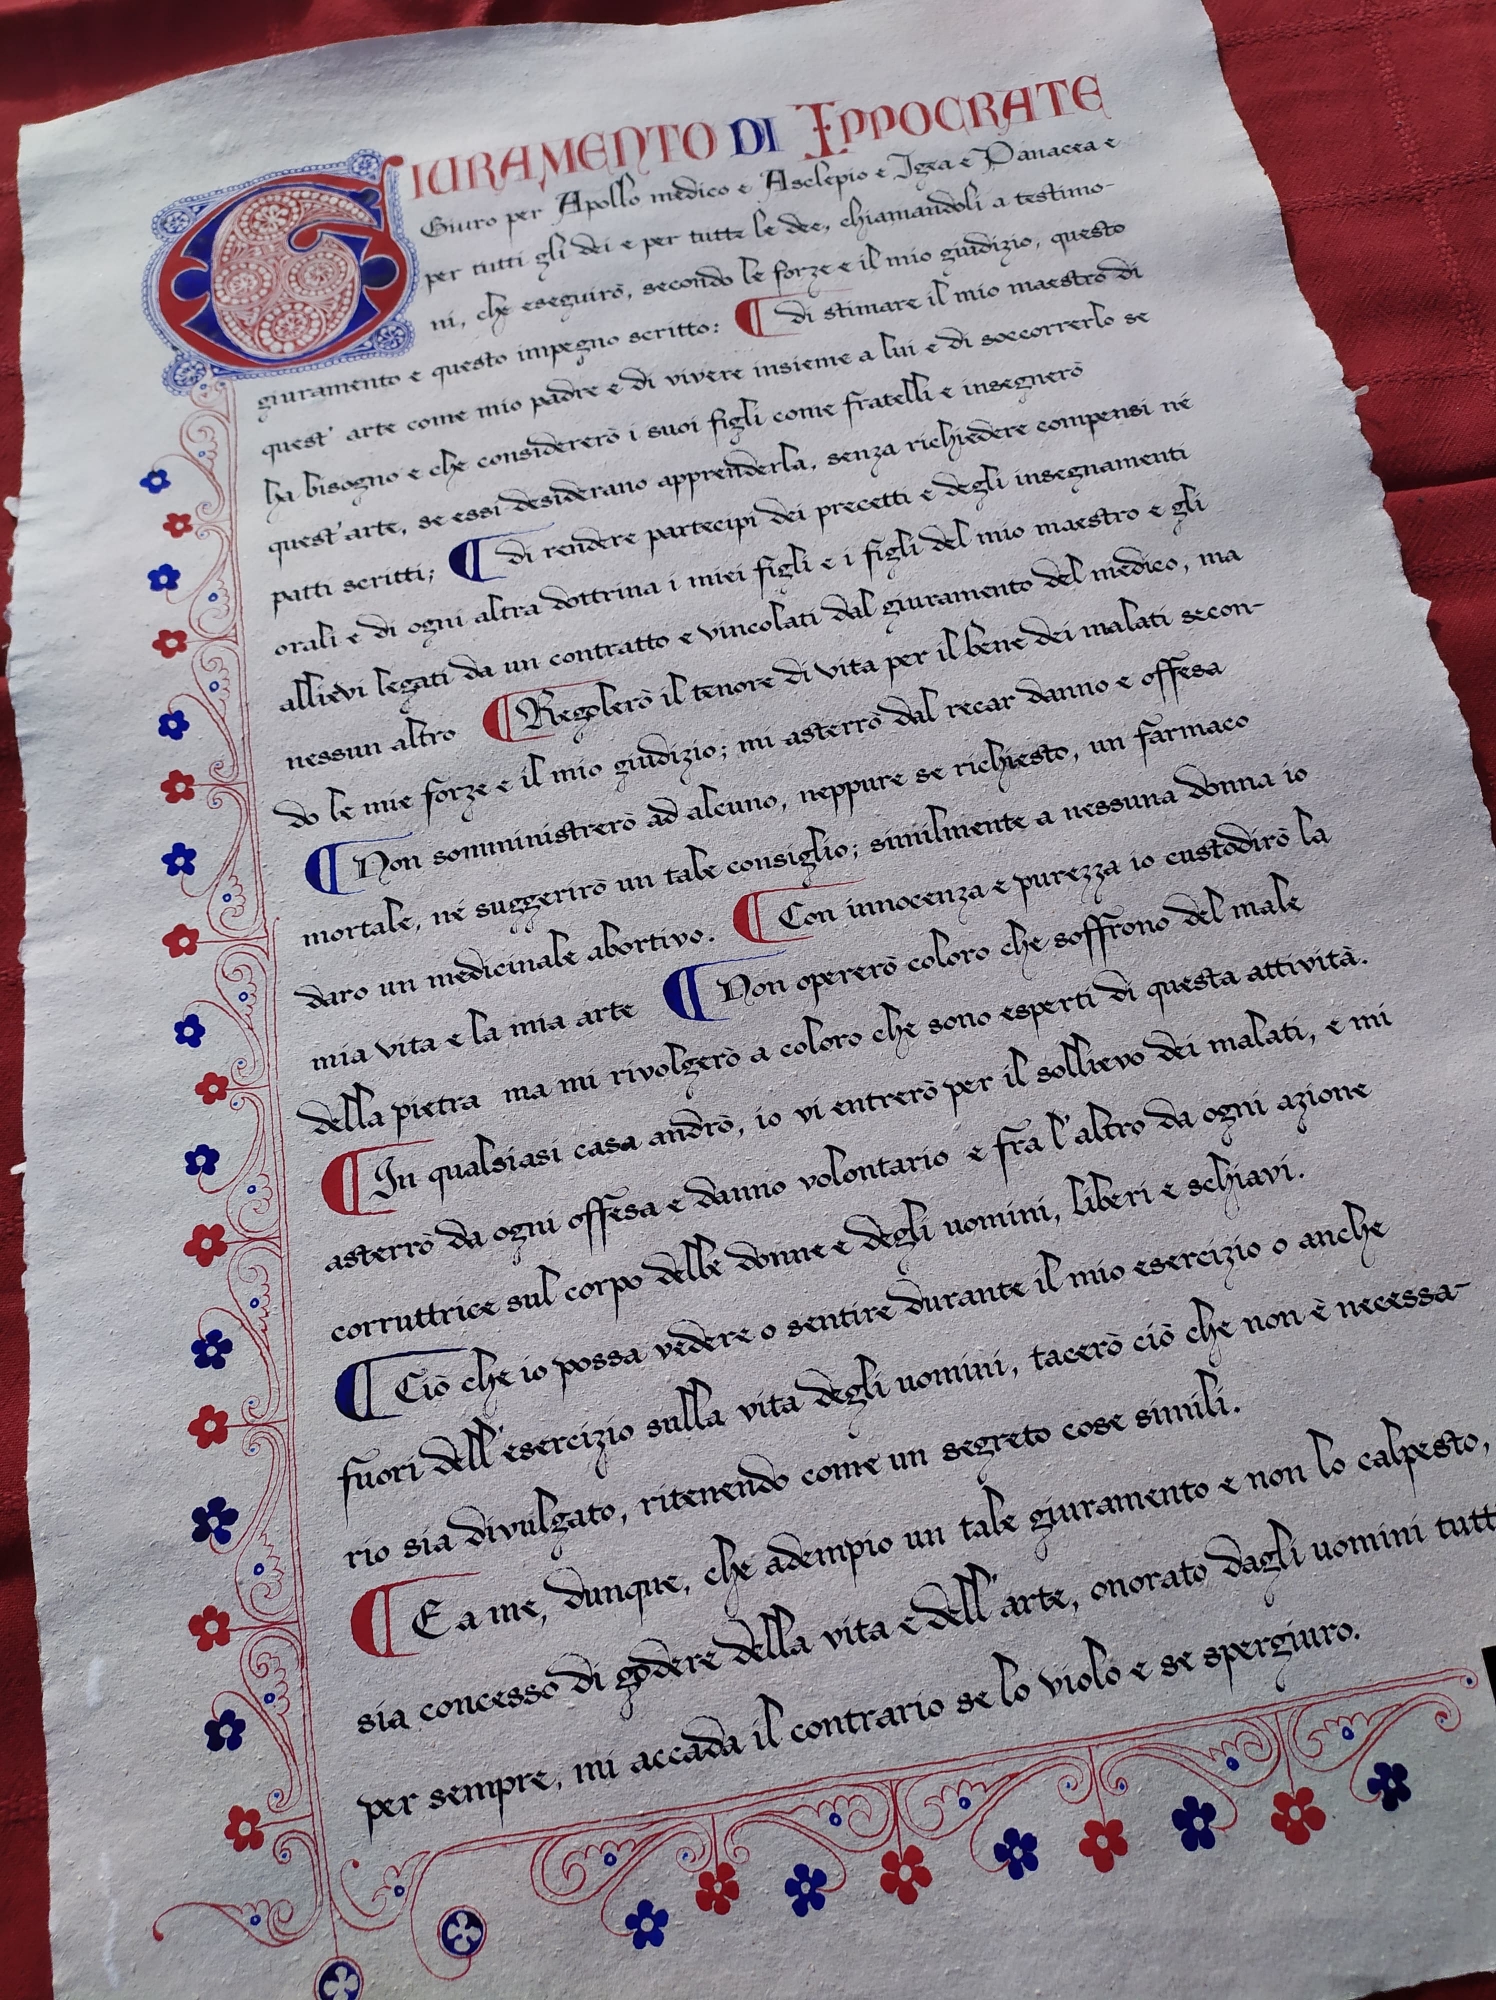 GIURAMENTO DI IPPOCRATE
Giuro per Apollo medico e Asclepio e Igea e Panacea e
per tutti gli dei e per tutte le dee, chiamandoli a testimo-
ni, che eseguirò, secondo le forze e il mio giudizio, questo
giuramento e questo impegno scritto: ¶ di stimare il mio maestro di
quest' arte come mio padre e di vivere insieme a lui e di soccorrerlo se
ha bisogno e che considererò i suoi figli come fratelli e insegnerò
quest'arte, se essi desiderano apprenderla, senza richiedere compensi né
patti scritti; ¶ di rendere partecipi dei precetti e degli insegnamenti
orali e di ogni altra dottrina i miei figli e i figli del mio maestro e gli
allievi legati da un contratto e vincolati dal giuramento del medico, ma
nessun altro ¶ Regolerò il tenore di vita per il bene dei malati secon-
do le mie forze e il mio giudizio; mi asterrò dal recar danno e offesa
¶ Non somministrerò ad alcuno, neppure se richiesto, un farmaco
mortale, né suggerirò un tale consiglio; similmente a nessuna donna io
daro un medicinale abortivo. ¶ Con innocenza e purezza io custodirò la
mia vita e la mia arte ¶ Non opererò coloro che soffrono del male
della pietra ma mi rivolgerò a coloro che sono esperti di questa attività.
¶ In qualsiasi casa andrò, io vi entrerò per il sollievo dei malati, e mi
asterrò da ogni offesa e danno volontario e fra l'altro da ogni azione
corruttrice sul corpo delle donne e degli uomini, liberi e schiavi.
¶ Ciò che io possa vedere o sentire durante il mio esercizio o anche
fuori dell'esercizio sulla vita degli uomini, tacerò ciò che non è necessa-
rio sia divulgato, ritenendo come un segreto cose simili.
¶ E a me, dunque, che adempio un tale giuramento e non lo calpesto,
sia concesso di godere della vita e dell'arte, onorato dagli uomini tutt
per sempre, mi accada il contrario se lo violo e se spergiuro.